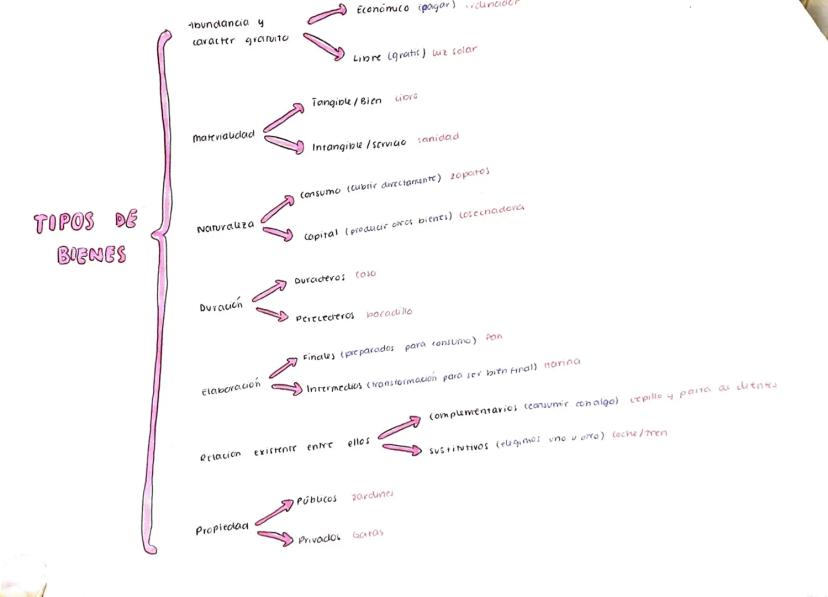 Abundancia y
carácter gratuito
Económico (pagar) ordenador
Libre (gratis) luz solar
Materialidad
Tangible/Bien libro
Intangible/servicio sanidad
TIPOS DE
BIENES
Naturaleza
Consumo (cubrir directamente) zapatos
Capital (producir otros bienes) cosechadora
Duración
Duraderos casa
Perecederos bocadillo
Elaboración
Finales (preparados para consumo) Pan
Intermedios (transformación para ser bien final) Harina
Relación existente entre ellos
Complementarios (consumir con algo) cepillo y pasta de dientes
Sustitutivos (elegimos uno u otro) coche/tren
Propiedad
Públicos jardines
Privados Gafas